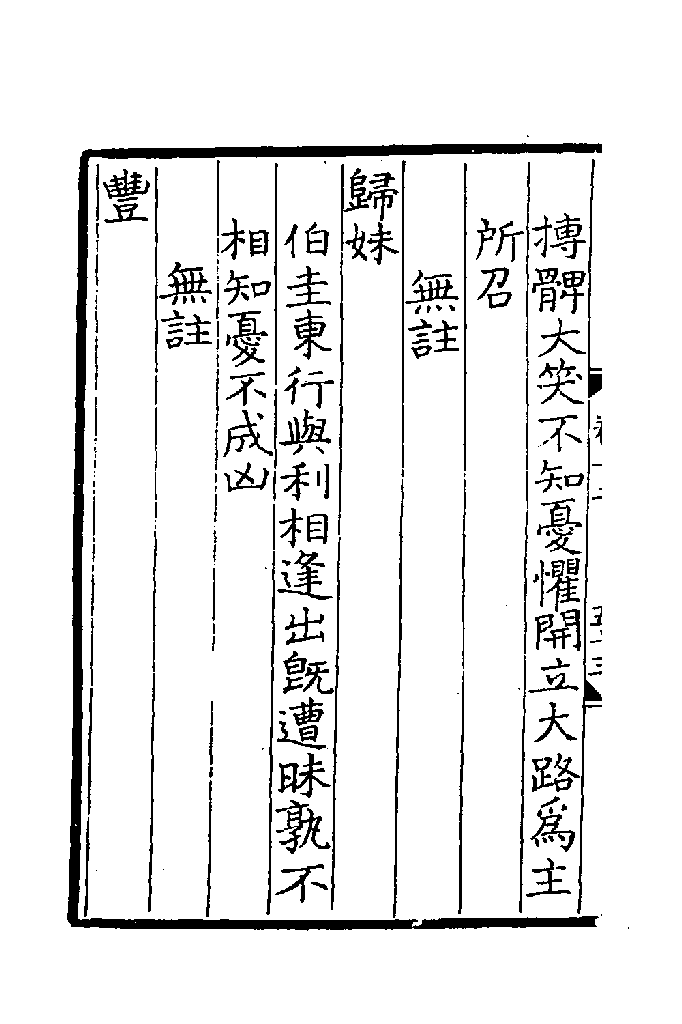 摶髀大笑不知憂懼開立大路爲主
所召
無註
歸妹
伯圭東行與利相逢出旣遭昧孰不
相知憂不成凶
無註
豐